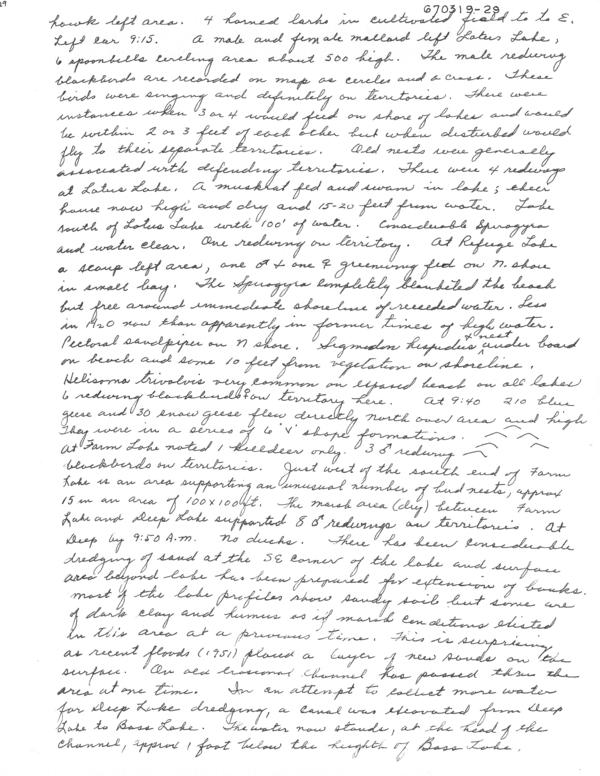 29
670319-29
hawk left area. 4 horned larks in cultivated field to to E.
Left car 9:15. A male and female mallard left Lotus Lake,
6 spoonbills circling area about 500 high. The male redwing
blackbirds are recorded on map as circles and a cross. These
birds were singing and definitely on territories. There were
instances when 3 or 4 would feed on shore of lakes and would
be within 2 or 3 feet of each other but when disturbed would
fly to their separate territories. Old nests were generally
associated with defending territories. There were 4 redwings
at Lotus Lake. A muskrat fed and swam in lake; their
house now high and dry and 15-20 feet from water. Lake
south of Lotus Lake with 100' of water. Considerable Spirogyra
and water clear. One redwing on territory. At Refuge Lake
a scaup left area, one ♂ + one ♀ greenwing fed on N. shore
in small bay. The Spirogyra completely blanketed the beach
but free around immediate shoreline of receeded water. Less
in H20 now than apparently in former times of high water.
Pectoral sandpiper on N shore. Sigmodon hispidus + nest under board
on beach and some 10 feet from vegetation on shoreline.
Helisoma trivolvis very common on exposed beach on all lakes
6 redwing blackbirds ♂ on territory here. At 9:40 210 blue
geese and 30 snow geese flew directly north over area and high
They were in a series of 6 "V" shape formations.
At Farm Lake noted 1 killdeer only. 3 ♂ redwing
blackbirds on territories. Just west of the south end of Farm
Lake is an area supporting an unusual number of bird nests, approx
15 in an area of 100x100 ft. The marsh area (dry) between Farm
Lake and Deep Lake supported 8 ♂ redwings on territories. At
Deep by 9:50 A.M. No ducks. There has been considerable
dredging of sand at the SE corner of the lake and surface
area beyond lake has been prepared for extension of banks.
Most of the lake profiles show sandy soils but some are
of dark clay and humus as if marsh conditions existed
in this area at a previous time. This is surprising
as recent floods (1951) placed a layer of new sands on the
surface. An old erosional channel has passed thru the
area at one time. In an attempt to collect more water
for Deep Lake dredging, a canal was excavated from Deep
Lake to Bass Lake. The water now stands, at the head of the
channel, approx 1 foot below the heighth of Bass Lake.